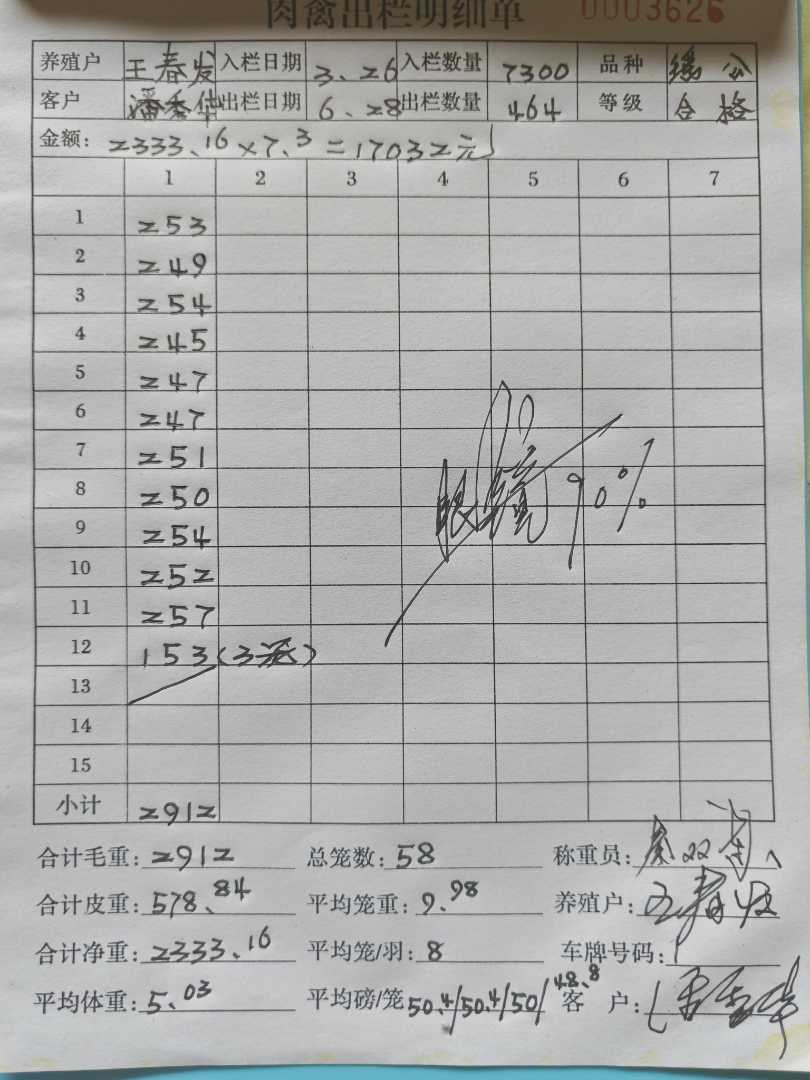 肉禽出栏明细单 0003626
养殖户 王春发 入栏日期 3.26 入栏数量 7300 品种 公
客户 潘秀华 出栏日期 6.28 出栏数量 464 等级 合格
金额: 2333.16×7.3=17032元
1 2 3 4 5 6 7
1 253
2 249
3 254
4 245
5 247
6 247
7 251
8 250
9 254
10 252
11 257
12 153(3笼)
13
14
15
90%
小计 2912
合计毛重: 2912 总笼数: 58 称重员:
合计皮重: 578.84 平均笼重: 9.98 养殖户: 王春发
合计净重: 2333.16 平均笼/羽: 8 车牌号码:
平均体重: 5.03 平均磅/笼 50.4/50.4/50/48.8 客 户: